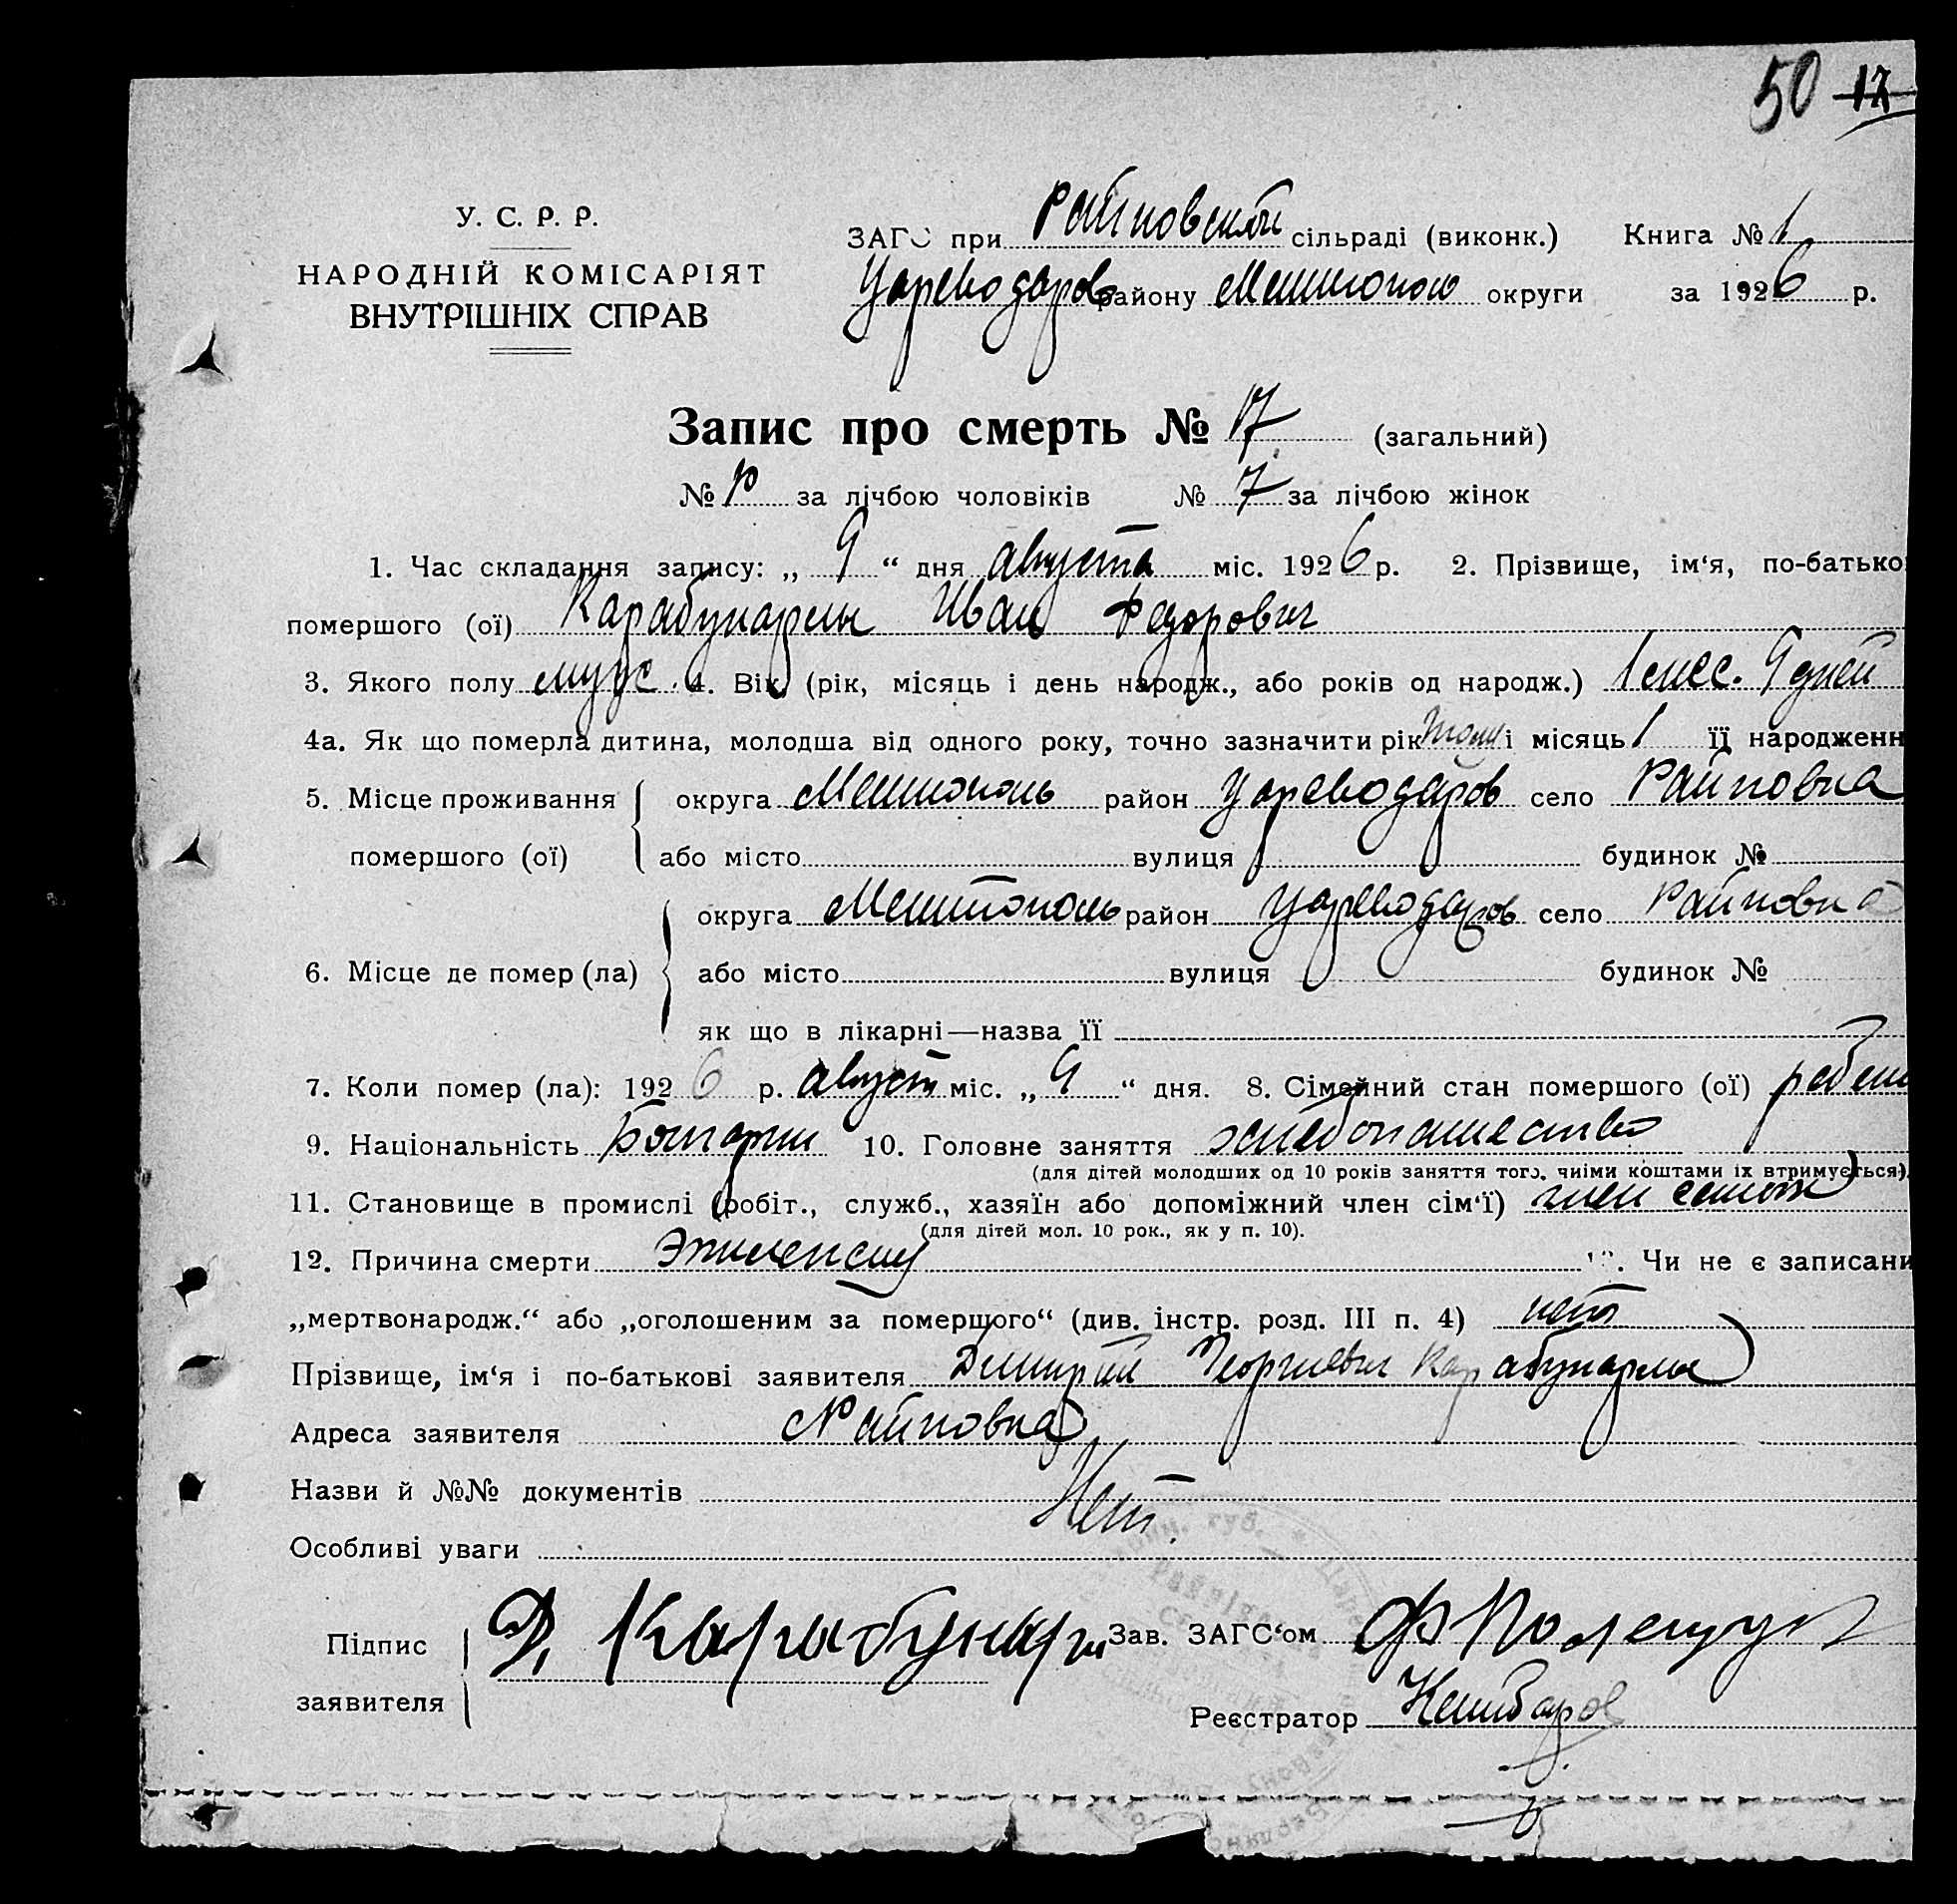 50 17
У. С. Р. Р.
НАРОДНІЙ КОМІСАРІЯТ
ВНУТРІШНІХ СПРАВ
ЗАГС при Райновской сільраді (виконк.) Книга № 1
Цареводаров району Мелитополь округи за 1926 р.
Запис про смерть № 17 (загальний)
№ за лічбою чоловіків № 7 за лічбою жінок
1. Час складання запису: „ 9 “ дня августа міс. 1926 р. 2. Прізвище, ім‘я, по-батько
помершого (ої) Карабунарлы Иван Федорович
3. Якого полу муж. 4. Вік (рік, місяць і день народж., або років од народж.) 1 мес. 9 дней
4а. Як що померла дитина, молодша від одного року, точно зазначити рік і місяць 1 її народженн
5. Місце проживання округа Мелитополь район Цареводаров село Райновка
помершого (ої) або місто вулиця будинок №
округа Мелитополь район Цареводаров село Райновка
6. Місце де помер (ла) або місто вулиця будинок №
як що в лікарні—назва її
7. Коли помер (ла): 1926 р. август міс. „ 9 “ дня. 8. Сімейний стан помершого (ої) ребен
9. Національність Болгарин 10. Головне заняття хлебопашество
(для дітей молодших од 10 років заняття того, чиїми коштами їх втримується).
11. Становище в промислі (робіт., служб., хазяїн або допоміжний член сім‘ї) член семьи
(для дітей мол. 10 рок., як у п. 10).
12. Причина смерти Эпилепсия . Чи не є записани
„мертвонародж.“ або „оголошеним за помершого“ (див. інстр. розд. III п. 4) нет
Прізвище, ім‘я і по-батькові заявителя Димитрий Георгиевич Карабунарлы
Адреса заявителя с Райновка
Назви й №№ документів Нет
Особливі уваги
Підпис Д. Карабунарлы Зав. ЗАГС‘ом
заявителя
Реєстратор